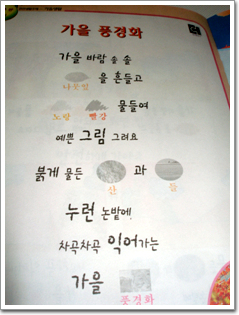 가을 풍경화
가을 바람 솔 솔
을 흔들고
나뭇잎
물들여
노랑 빨강
예쁜 그림 그려요
붉게 물든 과
산 들
누런 논밭에
차곡차곡 익어가는
가을
풍경화